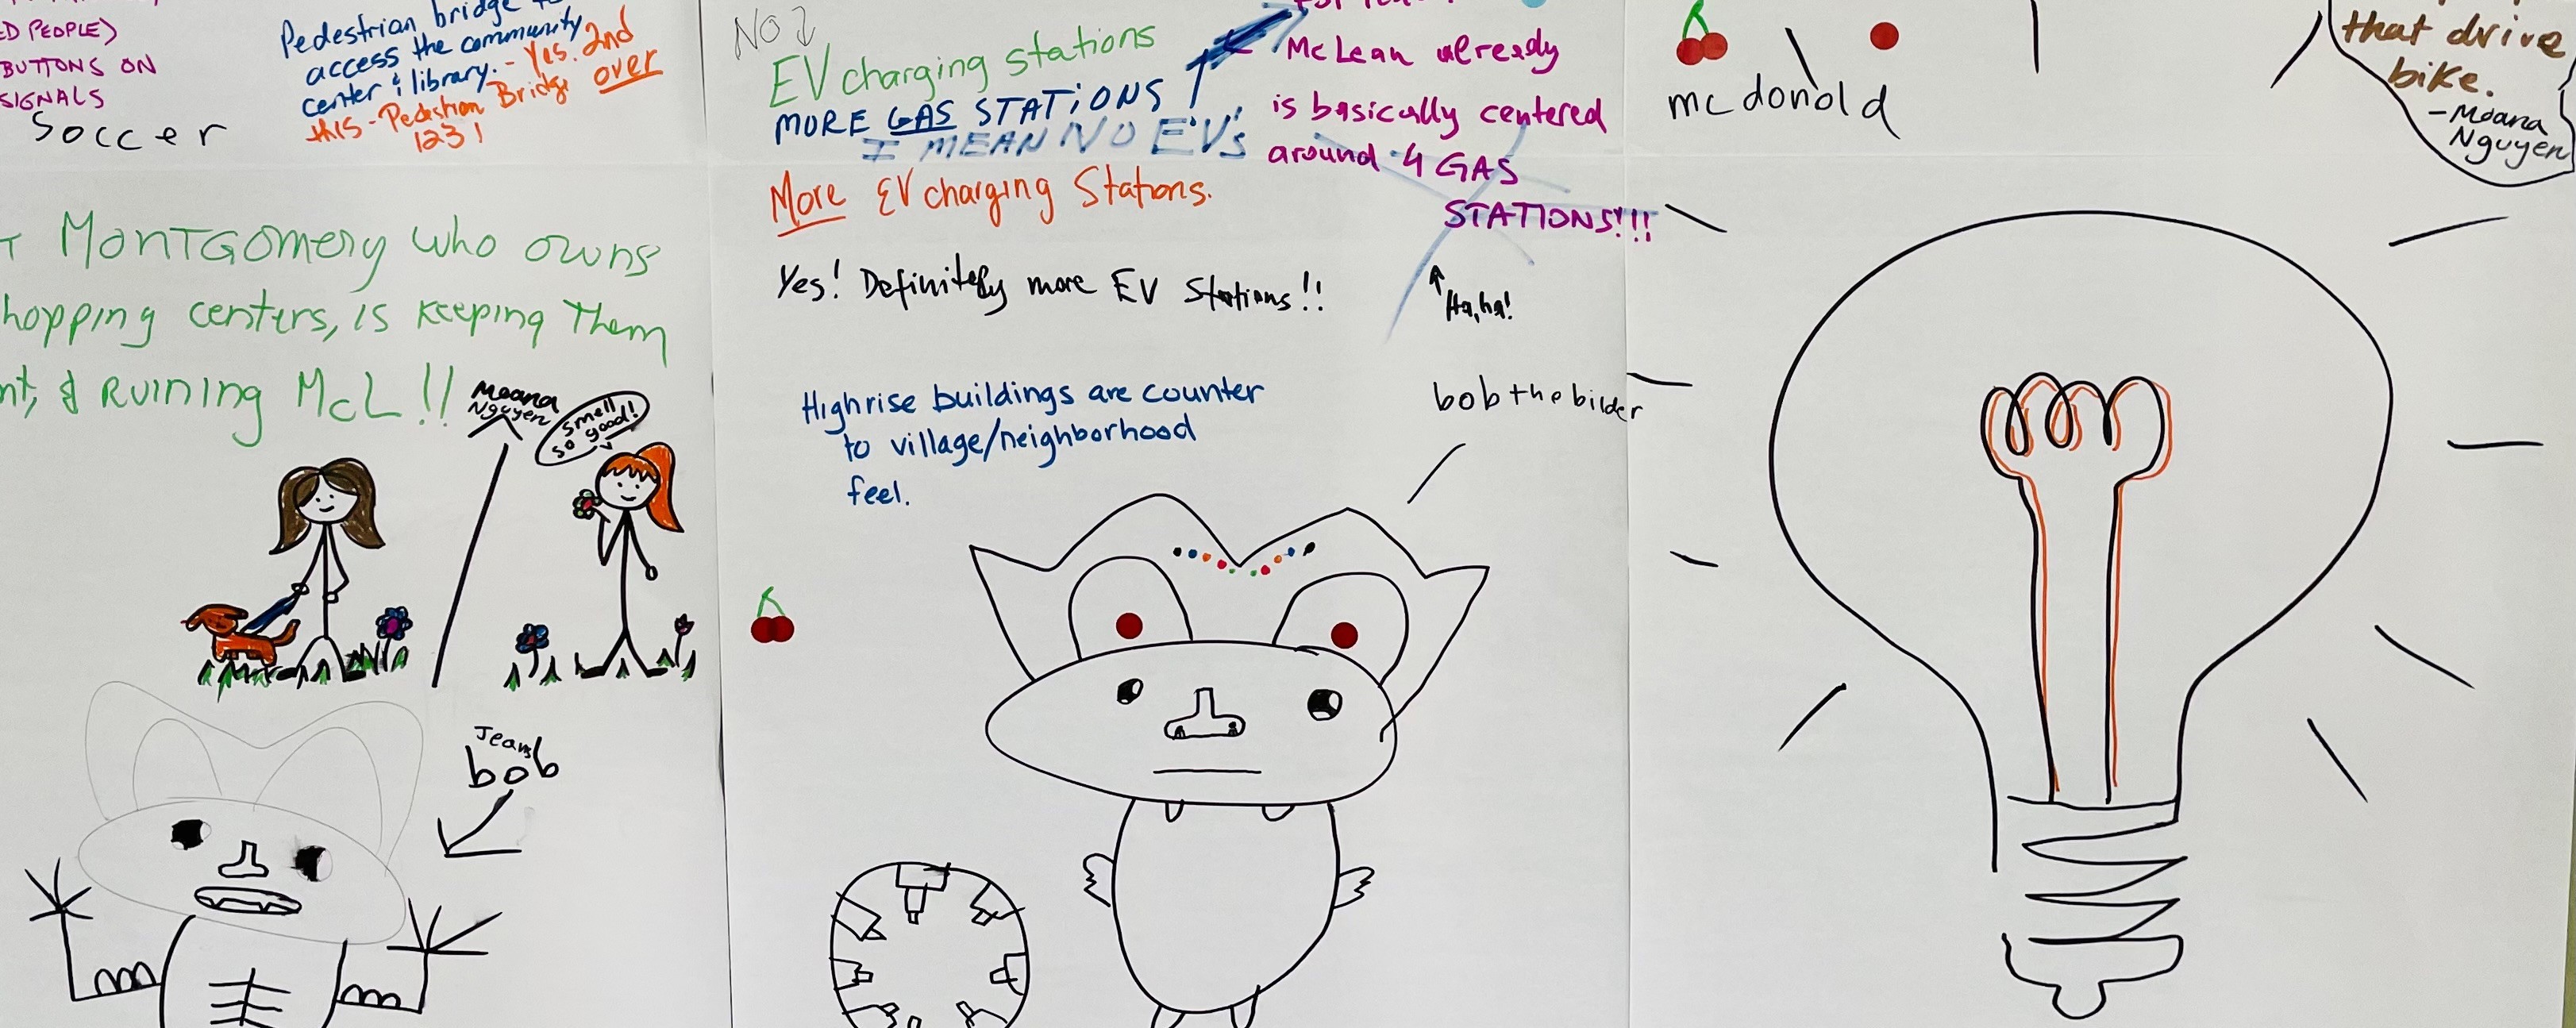 ED PEOPLE)
BUTTONS ON
SIGNALS
Soccer
Pedestrian bridge
access the community
center & library. - Yes. 2nd
this - Pedestrian Bridge over
123!
T MONTGOMERY who owns
hopping centers, is keeping Them
nt, & RUINING McL!!
Moana
Nguyen
smell
so good!
Jeans
bob
NO
EV charging stations
MORE GAS STATIONS
I MEAN NO EV's
More EV charging Stations.
Yes! Definitely more EV Stations!!
McLean already
is basically centered
around 4 GAS
STATIONS!!!
Ha, ha!
Highrise buildings are counter
to village/neighborhood
feel.
bob the bilder
mcdonold
that drive
bike.
-Moana
Nguyen